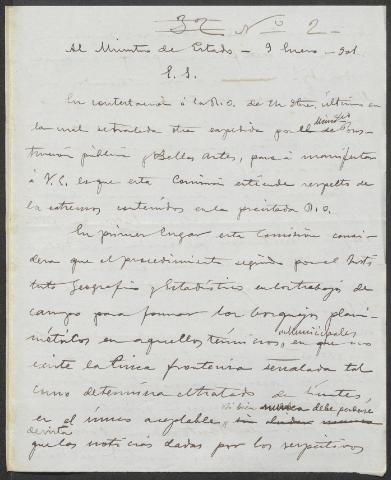 32 Nº 2-
Al Ministro de Estado - 9 Enero - 901
E. S.
En contestación á la R.O. de 24 Dbre. último en
la cual se traslada otra expedida por el Minist.º de Ins-
trucción pública y Bellas Artes, paso á manifestar
á V.E. lo que esta Comisión entiende respecto de
los extremos contenidos en la precitada R.O.
En primer lugar esta Comisión consi-
dera que el procedimiento seguido por el Insti-
tuto Geográfico y Estadístico en los trabajos de
campo para formar los bosquejos plani-
métricos en aquellos términos municipales, en que no
existe la línea fronteriza señalada tal
como determina el tratado de límites,
es el único aceptable, si bien debe perderse
de vista
que las noticias dadas por los respectivos